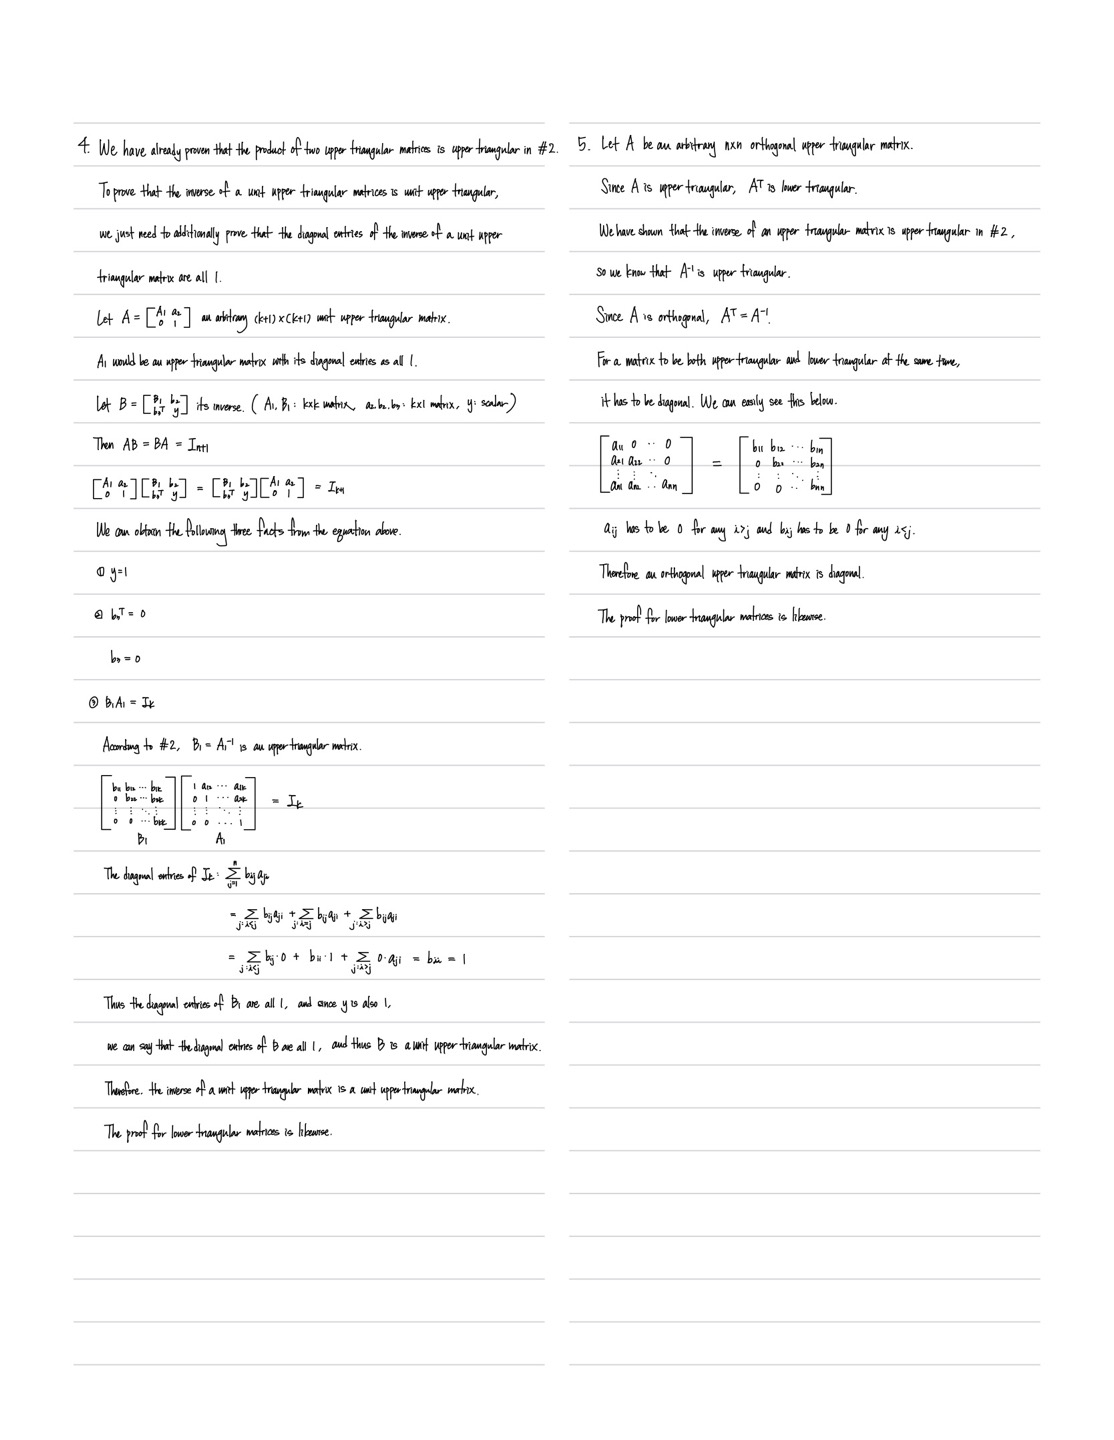 4. We have already proven that the product of two upper triangular matrices is upper triangular in #2.
To prove that the inverse of a unit upper triangular matrices is unit upper triangular,
we just need to additionally prove that the diagonal entries of the inverse of a unit upper
triangular matrix are all 1.
Let A = [A₁ a₂; 0 1] an arbitrary (k+1)×(k+1) unit upper triangular matrix.
A₁ would be an upper triangular matrix with its diagonal entries as all 1.
Let B = [B₁ b₂; b₃ᵀ y] its inverse. (A₁, B₁ : k×k matrix, a₂, b₂, b₃ : k×1 matrix, y : scalar)
Then AB = BA = Iₙ₊₁
[A₁ a₂; 0 1][B₁ b₂; b₃ᵀ y] = [B₁ b₂; b₃ᵀ y][A₁ a₂; 0 1] = Iₖ₊₁
We can obtain the following three facts from the equation above.
① y=1
② b₃ᵀ = 0
b₃ = 0
③ B₁A₁ = Iₖ
According to #2, B₁ = A₁⁻¹ is an upper triangular matrix.
[b₁₁ b₁₂ ⋯ b₁ₖ; 0 b₂₂ ⋯ b₂ₖ; ⋮ ⋮ ⋱ ⋮; 0 0 ⋯ bₖₖ][1 a₁₂ ⋯ a₁ₖ; 0 1 ⋯ a₂ₖ; ⋮ ⋮ ⋱ ⋮; 0 0 ⋯ 1] = Iₖ
B₁ A₁
The diagonal entries of Iₖ : ∑_{j=1}^{n} b_{ij} a_{ji}
= ∑_{j:i<j} b_{ij}a_{ji} + ∑_{j:i=j} b_{ij}a_{ji} + ∑_{j:i>j} b_{ij}a_{ji}
= ∑_{j:i<j} b_{ij}·0 + b_{ii}·1 + ∑_{j:i>j} 0·a_{ji} = b_{ii} = 1
Thus the diagonal entries of B₁ are all 1, and since y is also 1,
we can say that the diagonal entries of B are all 1, and thus B is a unit upper triangular matrix.
Therefore, the inverse of a unit upper triangular matrix is a unit upper triangular matrix.
The proof for lower triangular matrices is likewise.
5. Let A be an arbitrary n×n orthogonal upper triangular matrix.
Since A is upper triangular, Aᵀ is lower triangular.
We have shown that the inverse of an upper triangular matrix is upper triangular in #2,
so we know that A⁻¹ is upper triangular.
Since A is orthogonal, Aᵀ = A⁻¹.
For a matrix to be both upper triangular and lower triangular at the same time,
it has to be diagonal. We can easily see this below.
[a₁₁ 0 ⋯ 0; a₂₁ a₂₂ ⋯ 0; ⋮ ⋮ ⋱; aₙ₁ aₙ₂ ⋯ aₙₙ] = [b₁₁ b₁₂ ⋯ b₁ₙ; 0 b₂₂ ⋯ b₂ₙ; ⋮ ⋮ ⋱ ⋮; 0 0 ⋯ bₙₙ]
a_{ij} has to be 0 for any i>j and b_{ij} has to be 0 for any i<j.
Therefore an orthogonal upper triangular matrix is diagonal.
The proof for lower triangular matrices is likewise.